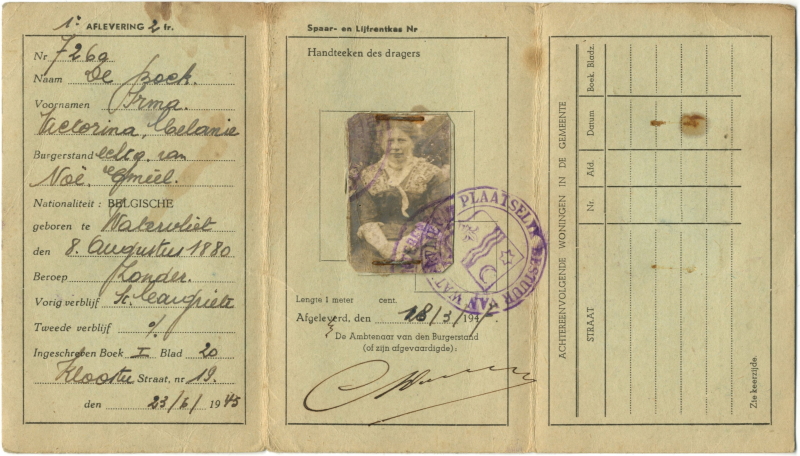 1e AFLEVERING 2 fr.
Nr 7269
Naam De Poek.
Voornamen Irma.
Victorina, Melanie
Burgerstand echtg. van
Noë, Emiel.
Nationaliteit : BELGISCHE
geboren te Watervliet
den 8. Augustus 1880
Beroep Zonder.
Vorig verblijf St Margriete
Tweede verblijf %
Ingeschreven Boek I Blad 20
Klooster Straat, nr 19.
den 23/6/ 1945
Spaar- en Lijfrentkas Nr
Handteeken des dragers
PLAATSELIJK BESTUUR VAN WAT
Lengte 1 meter cent.
Afgeleverd, den 18/3/194
De Ambtenaar van den Burgerstand
(of zijn afgevaardigde) :
ACHTEREENVOLGENDE WONINGEN IN DE GEMEENTE
Boek. Bladz.
Datum
Afd.
Nr.
STRAAT
Zie keerzijde.